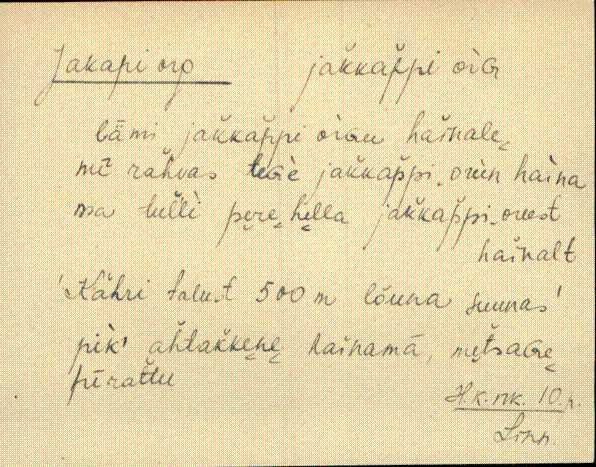 Jakapi org jaǩkap̌pi oŕɢ
lämi jaǩkap̌pi oŕɢu hainalȩ
mī rahvas teɢè jaǩkap̌pi_orun haina
ma tulli peȓe_hella jaǩkap̌pi_orust
hainalt
'Kähri talust 500 m lõuna suunas'
pik' ahtakkȩnȩ hainamā, mȩtsaɢȩ
pīrattu
H.k. nk. 10.
Linn